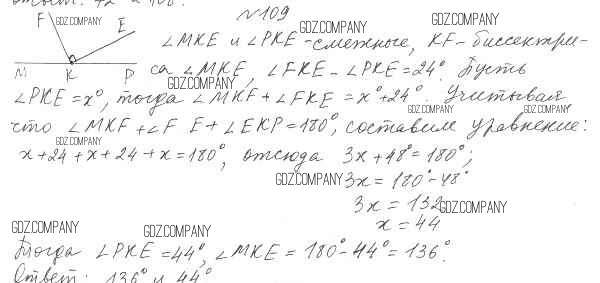 №109
F E
M K P
∠MKE и ∠PKE - смежные, KF - биссектри-
са ∠MKE, ∠FKE - ∠PKE = 24°. Пусть
∠PKE = x°, тогда ∠MKF + ∠FKE = x° + 24°. Учитывая
что ∠MKF + ∠F E + ∠EKP = 180°, составим уравнение:
x + 24 + x + 24 + x = 180°, отсюда 3x + 48° = 180°;
3x = 180° - 48°
3x = 132
x = 44
Тогда ∠PKE = 44°, ∠MKE = 180° - 44° = 136°.
Ответ: 136° и 44°
GDZ.COMPANY
GDZ.COMPANY
GDZ.COMPANY
GDZ.COMPANY
GDZ.COMPANY
GDZ.COMPANY
GDZ.COMPANY
GDZ.COMPANY
GDZ.COMPANY
GDZ.COMPANY
GDZ.COMPANY